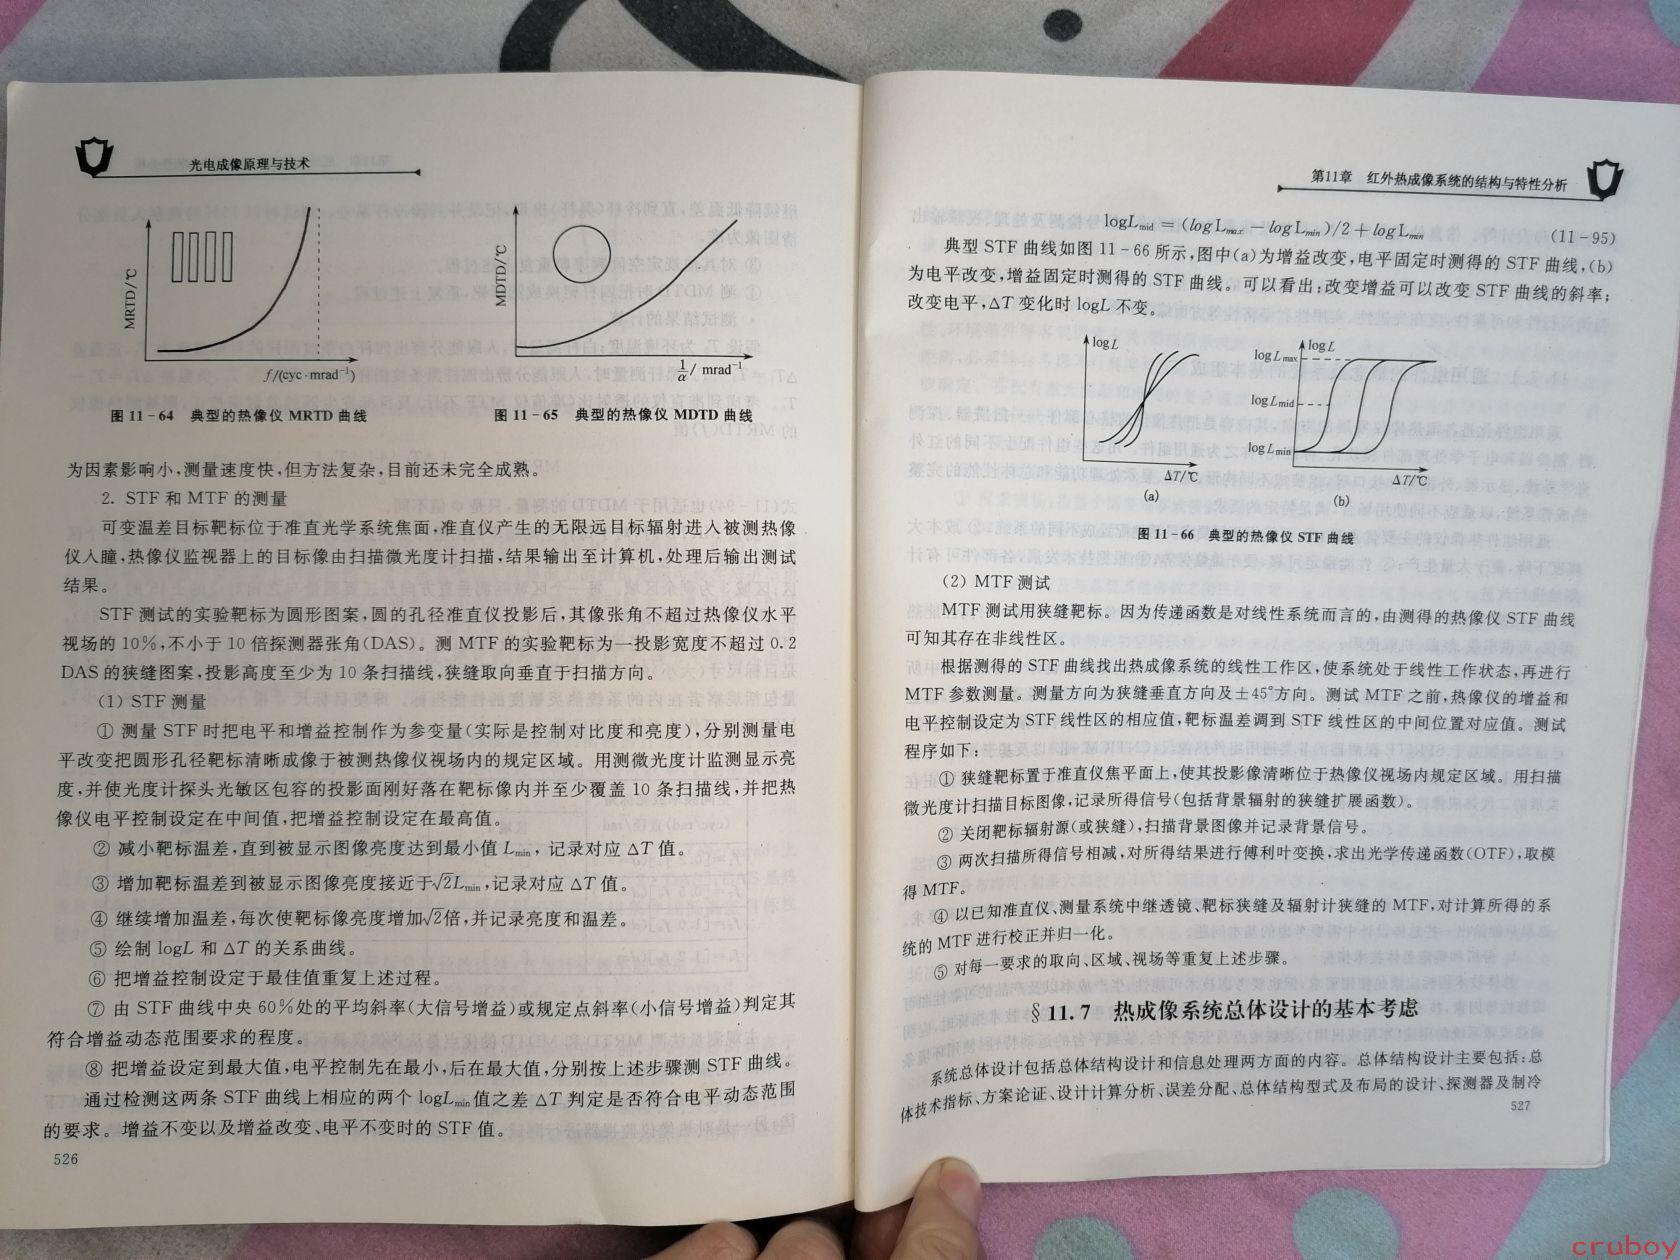 光电成像原理与技术
MRTD/℃
f/(cyc·mrad⁻¹)
图 11-64 典型的热像仪 MRTD 曲线
MDTD/℃
1/α / mrad⁻¹
图 11-65 典型的热像仪 MDTD 曲线
为因素影响小,测量速度快,但方法复杂,目前还未完全成熟。
2. STF 和 MTF 的测量
可变温差目标靶标位于准直光学系统焦面,准直仪产生的无限远目标辐射进入被测热像
仪入瞳,热像仪监视器上的目标像由扫描微光度计扫描,结果输出至计算机,处理后输出测试
结果。
STF 测试的实验靶标为圆形图案,圆的孔径准直仪投影后,其像张角不超过热像仪水平
视场的 10%,不小于 10 倍探测器张角(DAS)。测 MTF 的实验靶标为一投影宽度不超过 0.2
DAS 的狭缝图案,投影高度至少为 10 条扫描线,狭缝取向垂直于扫描方向。
(1) STF 测量
① 测量 STF 时把电平和增益控制作为参变量(实际是控制对比度和亮度),分别测量电
平改变把圆形孔径靶标清晰成像于被测热像仪视场内的规定区域。用测微光度计监测显示亮
度,并使光度计探头光敏区包容的投影面刚好落在靶标像内并至少覆盖 10 条扫描线,并把热
像仪电平控制设定在中间值,把增益控制设定在最高值。
② 减小靶标温差,直到被显示图像亮度达到最小值 Lmin, 记录对应 △T 值。
③ 增加靶标温差到被显示图像亮度接近于√2Lmin,记录对应 △T 值。
④ 继续增加温差,每次使靶标像亮度增加√2倍,并记录亮度和温差。
⑤ 绘制 logL 和 △T 的关系曲线。
⑥ 把增益控制设定于最佳值重复上述过程。
⑦ 由 STF 曲线中央 60%处的平均斜率(大信号增益)或规定点斜率(小信号增益)判定其
符合增益动态范围要求的程度。
⑧ 把增益设定到最大值,电平控制先在最小,后在最大值,分别按上述步骤测 STF 曲线。
通过检测这两条 STF 曲线上相应的两个 logLmin值之差 △T 判定是否符合电平动态范围
的要求。增益不变以及增益改变、电平不变时的 STF 值。
526
第11章 红外热成像系统的结构与特性分析
logLmid = (logLmax − logLmin)/2 + logLmin (11-95)
典型 STF 曲线如图 11-66 所示,图中(a)为增益改变,电平固定时测得的 STF 曲线,(b)
为电平改变,增益固定时测得的 STF 曲线。可以看出:改变增益可以改变 STF 曲线的斜率;
改变电平,△T 变化时 logL 不变。
logL
ΔT/℃
(a)
logL
logLmax
logLmid
logLmin
ΔT/℃
(b)
图 11-66 典型的热像仪 STF 曲线
(2) MTF 测试
MTF 测试用狭缝靶标。因为传递函数是对线性系统而言的,由测得的热像仪 STF 曲线
可知其存在非线性区。
根据测得的 STF 曲线找出热成像系统的线性工作区,使系统处于线性工作状态,再进行
MTF 参数测量。测量方向为狭缝垂直方向及±45°方向。测试 MTF 之前,热像仪的增益和
电平控制设定为 STF 线性区的相应值,靶标温差调到 STF 线性区的中间位置对应值。测试
程序如下:
① 狭缝靶标置于准直仪焦平面上,使其投影像清晰位于热像仪视场内规定区域。用扫描
微光度计扫描目标图像,记录所得信号(包括背景辐射的狭缝扩展函数)。
② 关闭靶标辐射源(或狭缝),扫描背景图像并记录背景信号。
③ 两次扫描所得信号相减,对所得结果进行傅利叶变换,求出光学传递函数(OTF),取模
得 MTF。
④ 以已知准直仪、测量系统中继透镜、靶标狭缝及辐射计狭缝的 MTF,对计算所得的系
统的 MTF 进行校正并归一化。
⑤ 对每一要求的取向、区域、视场等重复上述步骤。
§ 11.7 热成像系统总体设计的基本考虑
系统总体设计包括总体结构设计和信息处理两方面的内容。总体结构设计主要包括:总
体技术指标、方案论证、设计计算分析、误差分配、总体结构型式及布局的设计、探测器及制冷
527
cruboy